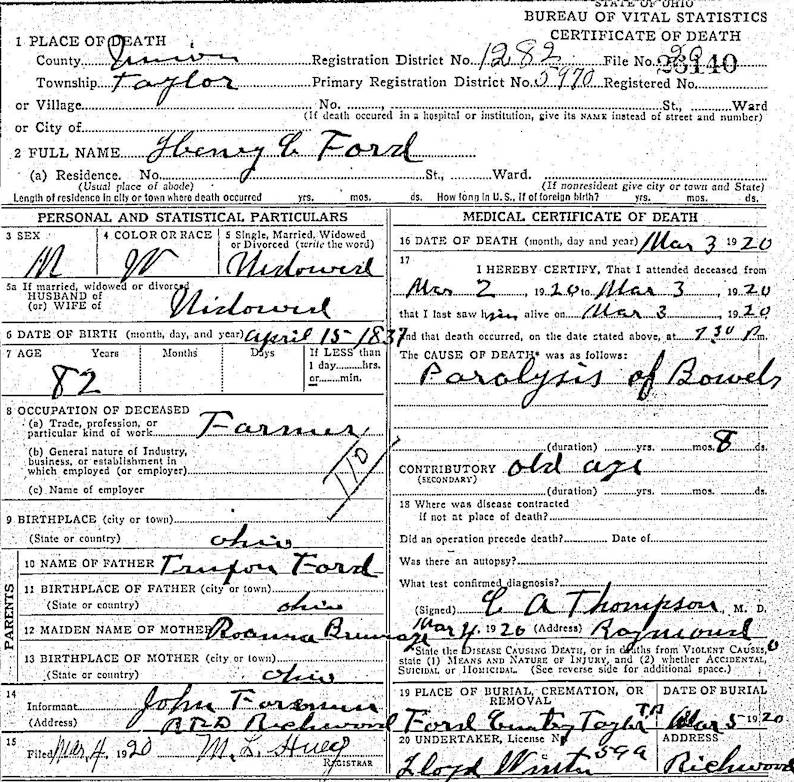 STATE OF OHIO
BUREAU OF VITAL STATISTICS
CERTIFICATE OF DEATH
1 PLACE OF DEATH
County Union Registration District No. 1282 File No. 20 23140
Township Taylor Primary Registration District No. 5970 Registered No.
or Village No. , St., Ward
(If death occured in a hospital or institution, give its NAME instead of street and number)
or City of
2 FULL NAME Henry C Ford
(a) Residence. No. St., Ward.
(Usual place of abode) (If nonresident give city or town and State)
Length of residence in city or town where death occurred yrs. mos. ds. How long in U.S., if of foreign birth? yrs. mos. ds.
PERSONAL AND STATISTICAL PARTICULARS
3 SEX 4 COLOR OR RACE 5 Single, Married, Widowed
or Divorced (write the word)
M W Widowed
5a If married, widowed or divorced
HUSBAND of
(or) WIFE of Widowed
6 DATE OF BIRTH (month, day, and year) April 15-1837
7 AGE Years Months Days If LESS than
1 day hrs.
or min.
82
8 OCCUPATION OF DECEASED
(a) Trade, profession, or
particular kind of work Farmer
(b) General nature of Industry,
business, or establishment in
which employed (or employer)
110
(c) Name of employer
9 BIRTHPLACE (city or town)
(State or country) Ohio
PARENTS
10 NAME OF FATHER Ford
11 BIRTHPLACE OF FATHER (city or town)
(State or country) Ohio
12 MAIDEN NAME OF MOTHER
13 BIRTHPLACE OF MOTHER (city or town)
(State or country) Ohio
14
Informant John
(Address) RFD Richwood
15
Filed Mar 4 1920 M. L. Huey
REGISTRAR
MEDICAL CERTIFICATE OF DEATH
16 DATE OF DEATH (month, day and year) Mar 3 1920
17
I HEREBY CERTIFY, That I attended deceased from
Mar 2, 1920 to Mar 3, 1920
that I last saw him alive on Mar 3, 1920
and that death occurred, on the date stated above, at 7 30 P m.
The CAUSE OF DEATH* was as follows:
Paralysis of Bowels
(duration) yrs. mos. 8 ds.
CONTRIBUTORY old age
(SECONDARY)
(duration) yrs. mos. ds.
18 Where was disease contracted
if not at place of death?
Did an operation precede death? Date of
Was there an autopsy?
What test confirmed diagnosis?
(Signed) C A Thompson, M. D.
Mar 4, 1920 (Address) Raymond O
*State the DISEASE CAUSING DEATH, or in deaths from VIOLENT CAUSES,
state (1) MEANS AND NATURE OF INJURY, and (2) whether ACCIDENTAL,
SUICIDAL or HOMICIDAL. (See reverse side for additional space.)
19 PLACE OF BURIAL, CREMATION, OR
REMOVAL
DATE OF BURIAL
Ford Taylor Tp Mar 5 1920
20 UNDERTAKER, License No. 59a ADDRESS
Lloyd Winter Richwood